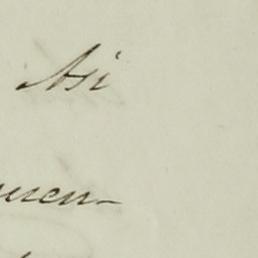 Asi
uen-